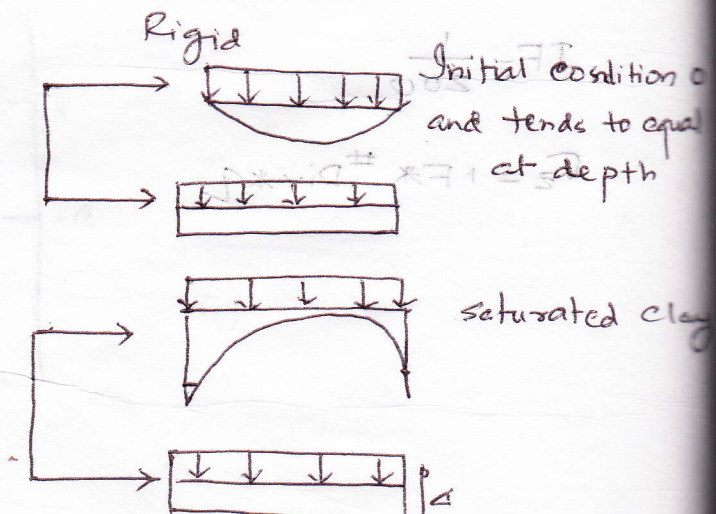 Rigid
Initial condition o
and tends to equal
at depth
saturated clay